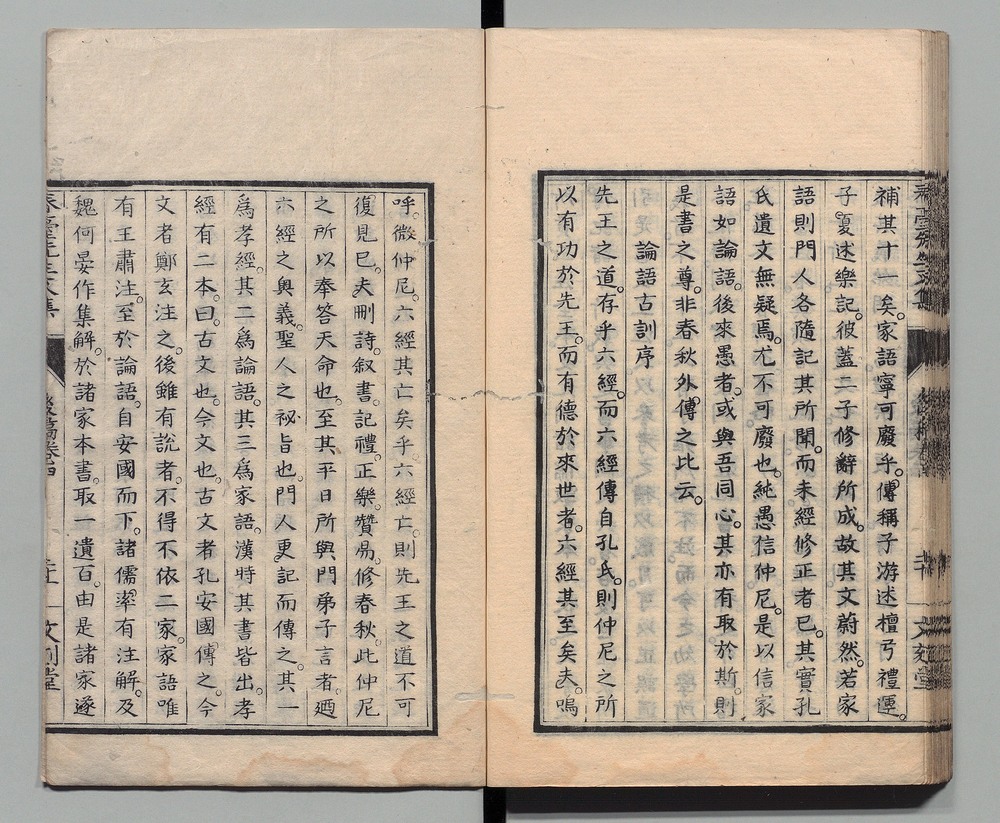 補其十一矣。家語寧可廢乎。傳稱子游述檀弓禮運。
子夏述樂記。彼蓋二子修辭所成。故其文蔚然。若家
語則門人各隨記其所聞。而未經修正者已。其實孔
氏遺文無疑焉。尤不可廢也。純愚信仲尼。是以信家
語如論語。後來愚者。或與吾同心。其亦有取於斯。則
是書之尊。非春秋外傳之比云。
論語古訓序
先王之道。存乎六經。而六經傳自孔氏。則仲尼之所
以有功於先王。而有德於來世者。六經其至矣夫。嗚
呼。微仲尼。六經其亡矣乎。六經亡。則先王之道不可
復見已。夫刪詩叙書。記禮。正樂。贊易。修春秋。此仲尼
之所以奉答天命也。至其平日所與門弟子言者。廼
六經之奧義。聖人之祕旨也。門人更記而傳之。其一
爲孝經。其二爲論語。其三爲家語。漢時其書皆出。孝
經有二本。曰古文也。今文也。古文者孔安國傳之。今
文者鄭玄注之。後雖有說者。不得不依二家。家語唯
有王肅注。至於論語。自安國而下。諸儒潔有注解。及
魏何晏作集解。於諸家本書。取一遺百。由是諸家遂
春臺先生文集
後稿卷四
文刻堂